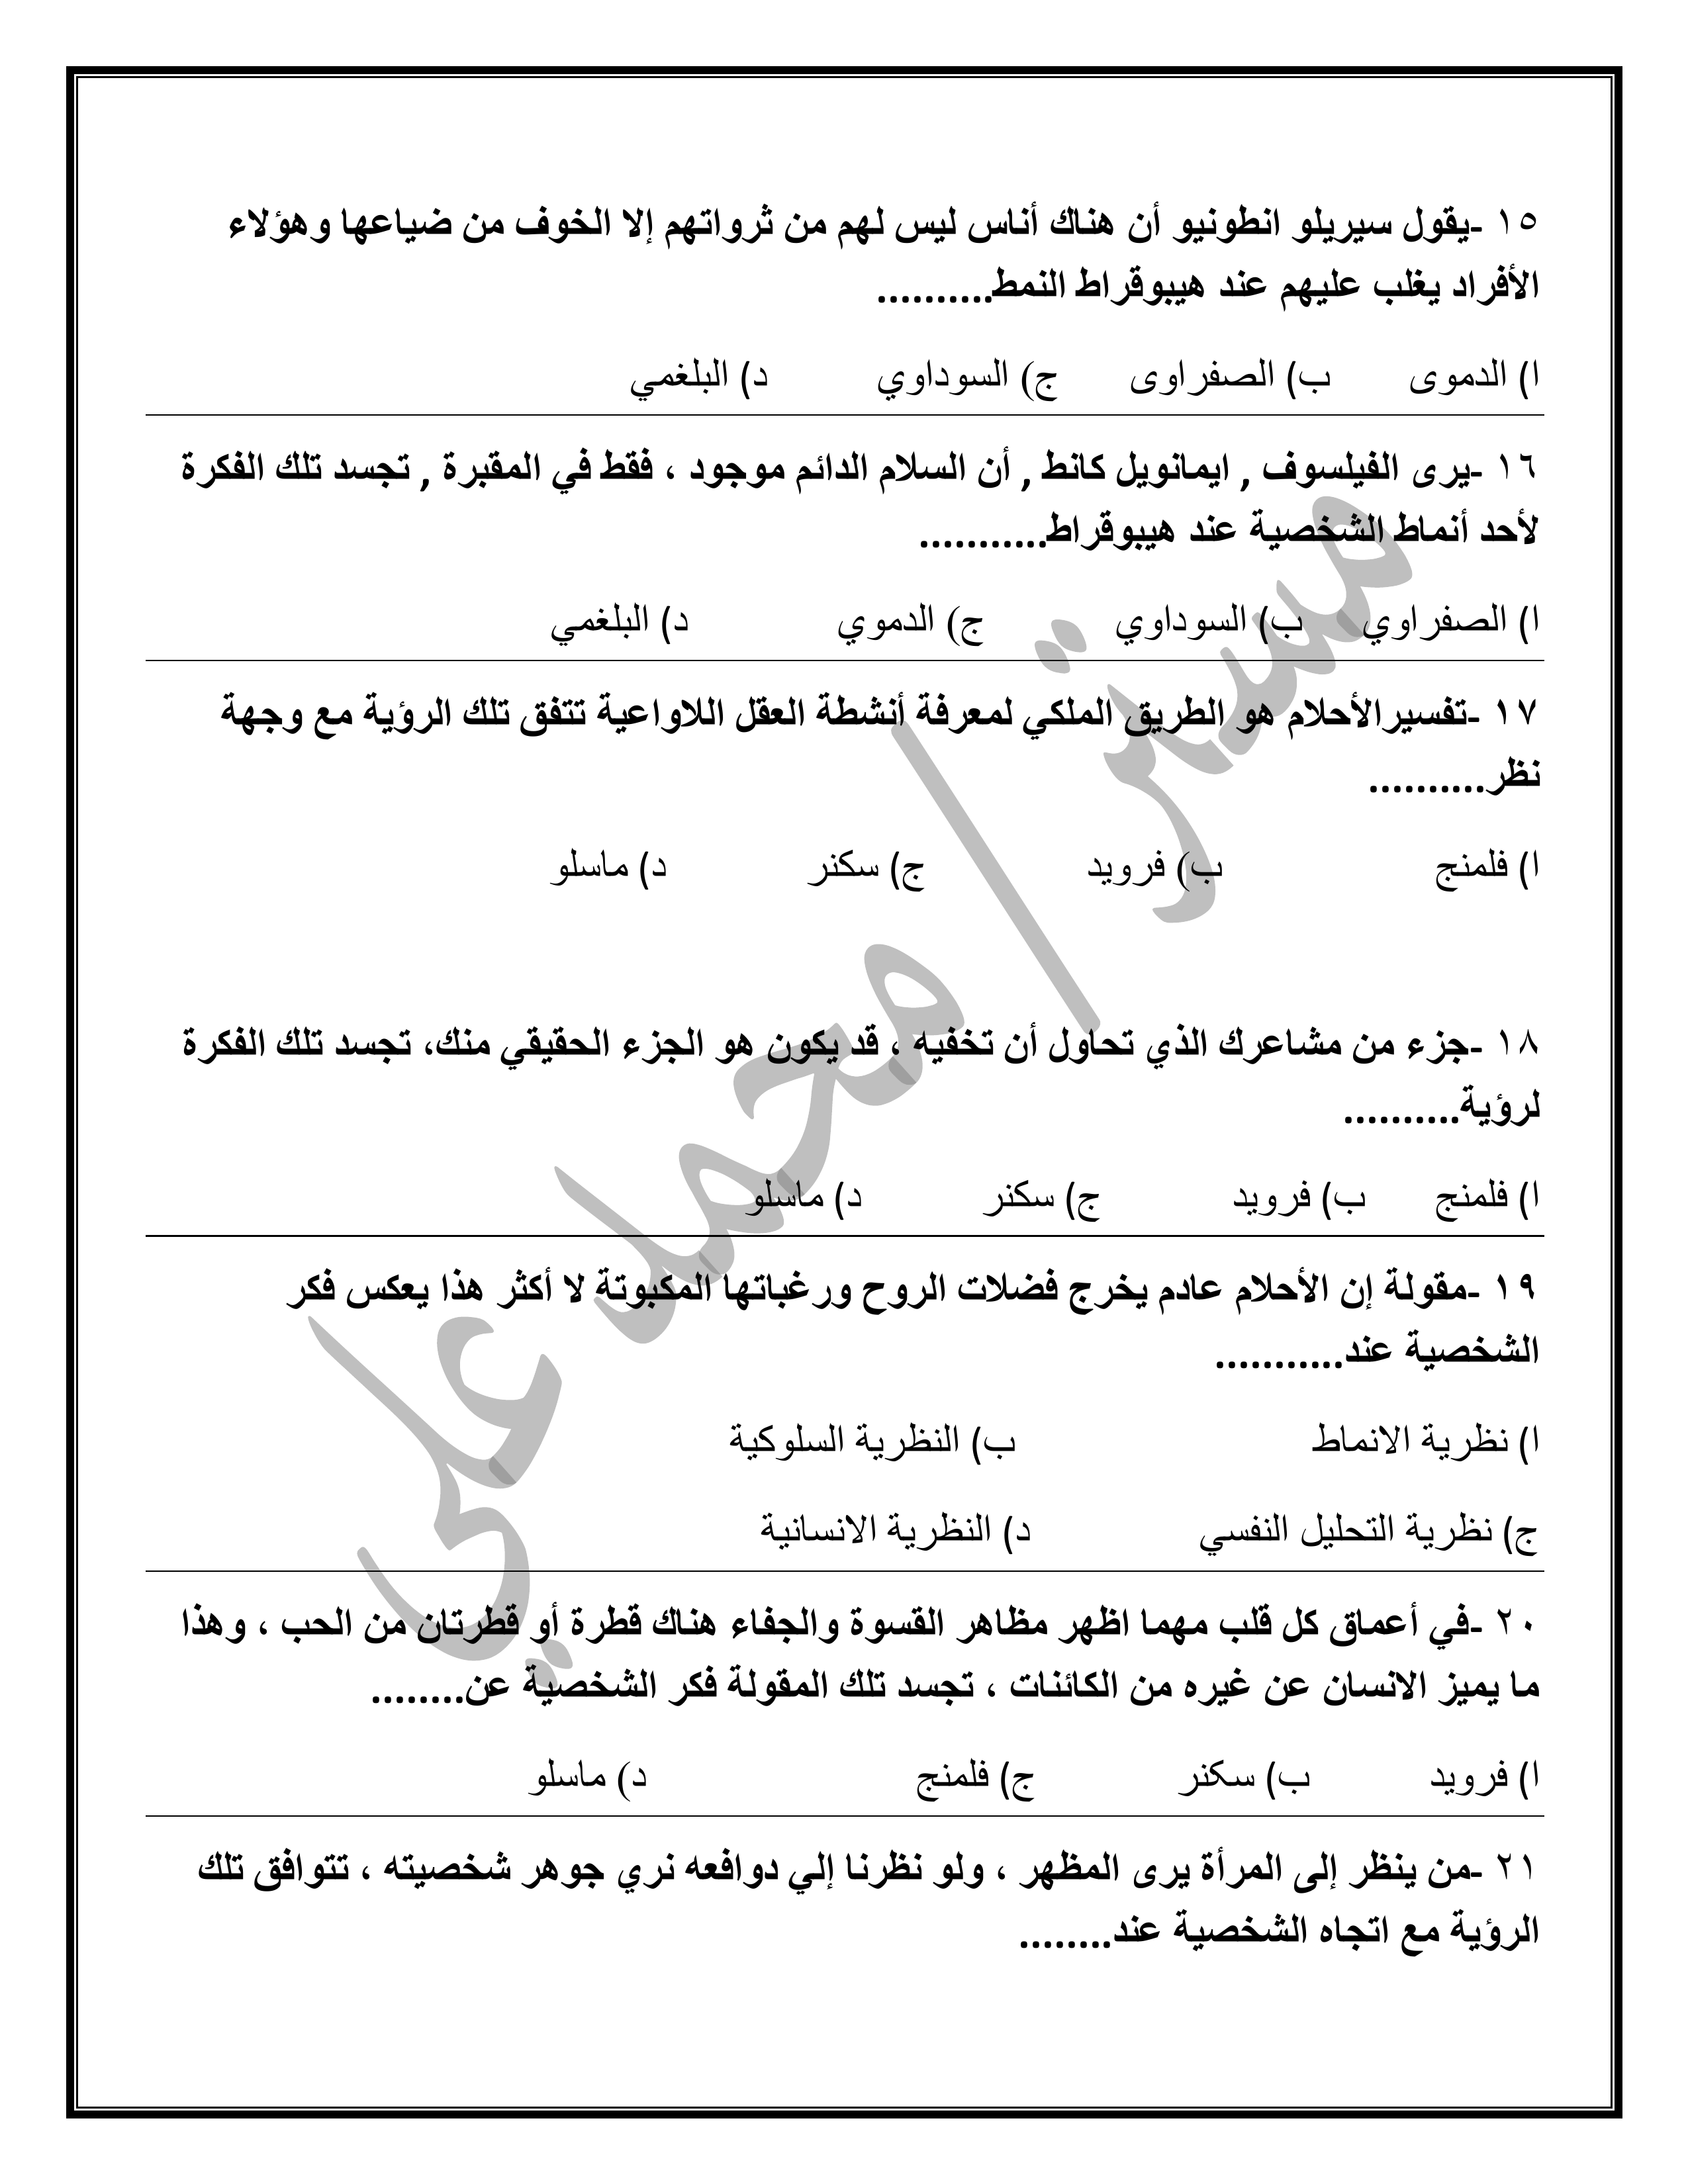 ١٥ -يقول سيريلو انطونيو أن هناك أناس ليس لهم من ثرواتهم إلا الخوف من ضياعها وهؤلاء
الأفراد يغلب عليهم عند هيبوقراط النمط..........
ا) الدموى ب) الصفراوى ج) السوداوي د) البلغمي
١٦ -يرى الفيلسوف , ايمانويل كانط , أن السلام الدائم موجود ، فقط في المقبرة , تجسد تلك الفكرة
لأحد أنماط الشخصية عند هيبوقراط...........
ا) الصفراوي ب) السوداوي ج) الدموي د) البلغمي
١٧ -تفسيرالأحلام هو الطريق الملكي لمعرفة أنشطة العقل اللاواعية تتفق تلك الرؤية مع وجهة
نظر..........
ا) فلمنج ب) فرويد ج) سكنر د) ماسلو
١٨ -جزء من مشاعرك الذي تحاول أن تخفيه ، قد يكون هو الجزء الحقيقي منك، تجسد تلك الفكرة
لرؤية..........
ا) فلمنج ب) فرويد ج) سكنر د) ماسلو
١٩ -مقولة إن الأحلام عادم يخرج فضلات الروح ورغباتها المكبوتة لا أكثر هذا يعكس فكر
الشخصية عند...........
ا) نظرية الانماط ب) النظرية السلوكية
ج) نظرية التحليل النفسي د) النظرية الانسانية
٢٠ -في أعماق كل قلب مهما اظهر مظاهر القسوة والجفاء هناك قطرة أو قطرتان من الحب ، وهذا
ما يميز الانسان عن غيره من الكائنات ، تجسد تلك المقولة فكر الشخصية عن........
ا) فرويد ب) سكنر ج) فلمنج د) ماسلو
٢١ -من ينظر إلى المرأة يرى المظهر ، ولو نظرنا إلي دوافعه نري جوهر شخصيته ، تتوافق تلك
الرؤية مع اتجاه الشخصية عند........
مستر/محمد علي